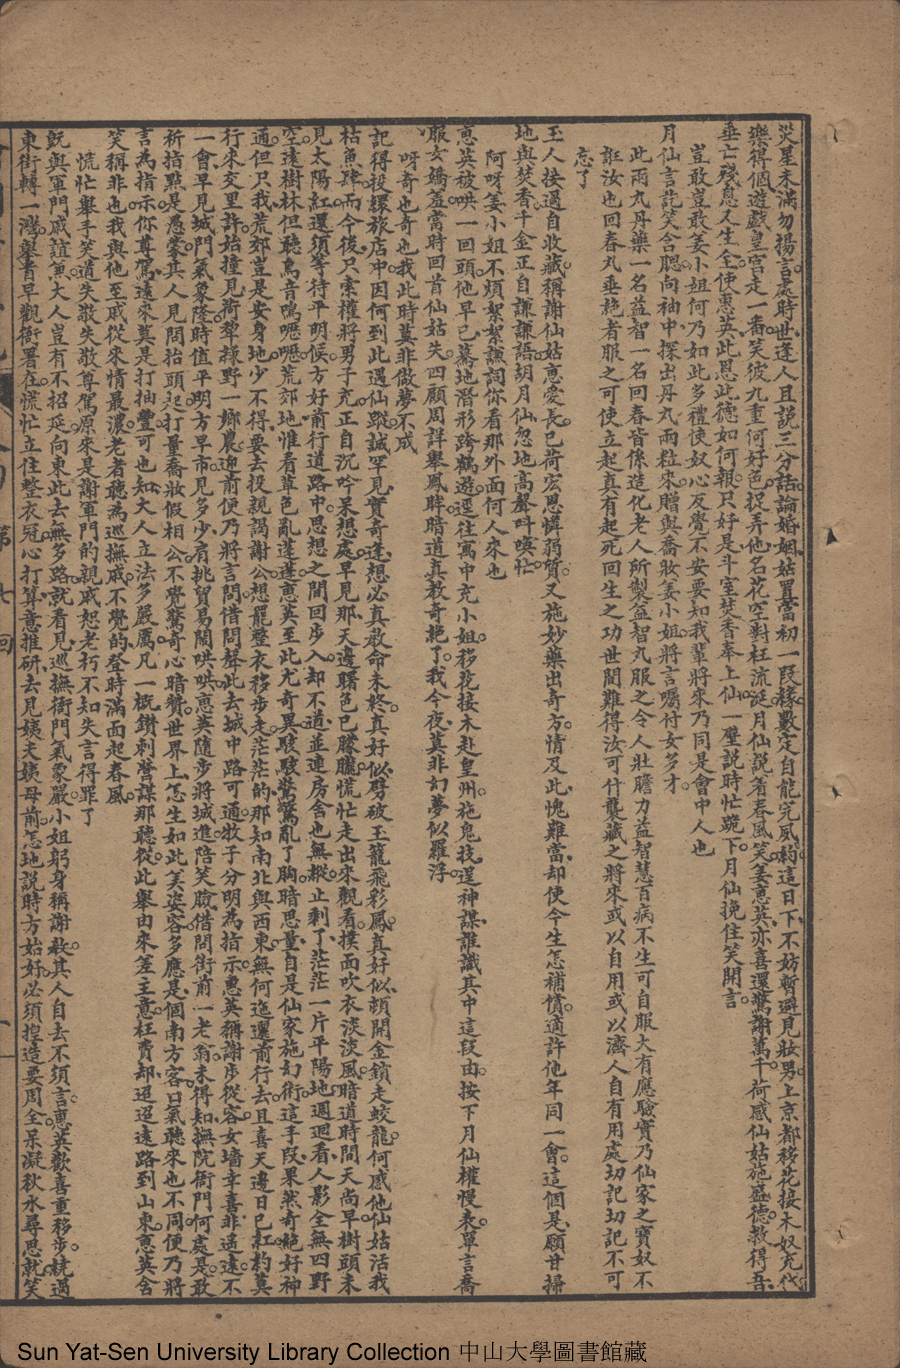 災星未滿勿揚言處時世逢人且說三分話論婚姻姑置當初一段緣數定自龍完夙約這日下不妨暫避見妝男上京都移花接木奴充代
樂得個遊戲皇宮走一番笑彼九重何好色捉弄他名花空對枉流涎月仙說着春風笑姜惠英亦喜還驚謝萬千荷感仙姑施盛德救得吾
垂亡殘息又生全使惠英此恩此德如何報只好是斗室焚香奉上仙一壁說時忙跪下月仙挽住笑開言
豈敢豈敢姜小姐何乃如此多禮使奴心反覺不安要知我輩將來乃同是會中人也
月仙言訖笑含腮向袖中探出丹丸兩粒來贈與喬妝姜小姐將言囑付女多才
此兩丸丹藥一名益智一名回春皆係造化老人所製益智丸服之令人壯膽力益智慧百病不生可自服大有應驗實乃仙家之寶奴不
誑汝也回春丸垂絕者服之可使立起真有起死回生之功世間難得汝可什襲藏之將來或以自用或以濟人自有用處切記切記不可
忘了
玉人接過自收藏稱謝仙姑惠愛長已荷宏恩憐弱質又施妙藥出奇方情及此愧難當却使今生怎補償適許他年同一會這個是願甘掃
地與焚香千金正自謙謙語胡月仙忽地高聲呌喚忙
阿呀姜小姐不煩絮絮謙詞你看那外面何人來也
惠英被哄一回頭他早已驀地潛形跨鶴遊逕往寓中充小姐移花接木赴皇州施鬼技逞神謀誰識其中這段由按下月仙權慢表單言喬
服女嬌羞當時回首仙姑失四顧周詳舉鳳眸暗道真教奇絕了我今夜莫非幻夢似羅浮
呀奇也奇也我此時莫非做夢不成
記得投繯旅店中因何到此遇仙蹤誠罕見實奇逢想必真教命未終真好似劈破玉籠飛彩鳳真好似頓開金鎖走蛟龍何感他仙姑活我
枯魚肆而今後只索權將男子充正自沉吟呆想處早見那天邊曙色已朦朧慌忙走出來觀看撲面吹衣淡淡風暗道時間天尚早樹頭未
見太陽紅還須等待平明候方好前行道路中思想之間回步入却不道並連房舍也無蹤止剩了茫茫一片平陽地週迴看人影全無四野
空遠樹林但聽鳥音鳴嚦嚦荒郊地惟看草色亂蓬蓬惠英至此尤奇異駭駭驚驚亂了胸暗思量自是仙家施幻術這手段果然奇絕好神
通但只我荒郊豈是安身地少不得要去投親謁謝公想罷整衣移步走茫茫的那知南北與西東無何迤邐前行去且喜天邊日已紅約莫
行來交里許始撞見荷犂祿野一鄉農迎前便乃將言問借問聲此去城中路可通牧子分明為指示惠英稱謝步從容女墻幸喜非遙遠不
一會早見城門氣象隆時值平明方早市見多少肩挑貿易鬧哄哄惠英隨步將城進陪笑臉借問街前一老翁未得知撫院衙門何處是敢
祈指點是愚蒙其人見問抬頭起打量喬妝假相公不覺驚奇心暗贊世界上怎生如此美姿容多應是個南方客口氣聽來也不同便乃將
言為指示你尊駕遠來莫是打抽豐可也知大人立法多嚴厲凡一概鑽刺營謀那聽從此舉由來差主意枉費却迢迢遠路到山東惠英含
笑稱非也我與他至戚從來情最濃老者聽為巡撫戚不覺的登時滿面起春風
慌忙舉手笑道失敬失敬尊駕原來是謝軍門的親戚恕老朽不知失言得罪了
旣與軍門戚誼兼大人豈有不招延向東此去無多路就看見巡撫衙門氣象嚴小姐躬身稱謝教其人自去不須言惠英歡喜重移步繞過
東街轉一灣舉首早觀衙署在慌忙立住整衣冠心打算意推研去見姨夫姨母前怎地說時方始好必須捏造要周全呆凝秋水尋思就笑
第七回
Sun Yat-Sen University Library Collection 中山大學圖書館藏